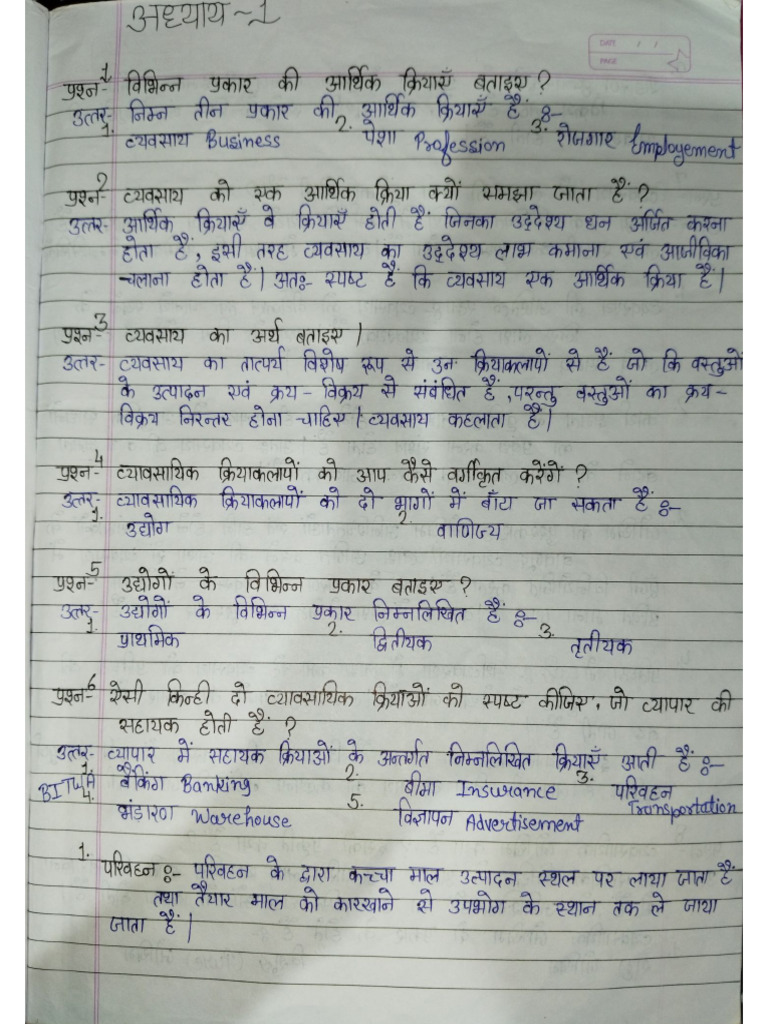 अध्याय ~ 1
DATE / /
PAGE
प्रश्न-1 विभिन्न प्रकार की आर्थिक क्रियाएँ बताइए ?
उत्तर- निम्न तीन प्रकार की आर्थिक क्रियाएँ हैं :-
1. व्यवसाय Business 2. पेशा Profession 3. रोजगार Employement
प्रश्न-2 व्यवसाय को एक आर्थिक क्रिया क्यों समझा जाता हैं ?
उत्तर- आर्थिक क्रियाएँ वे क्रियाएँ होती हैं जिनका उद्देश्य धन अर्जित करना
होता हैं, इसी तरह व्यवसाय का उद्देश्य लाभ कमाना एवं आजीविका
चलाना होता हैं। अतः- स्पष्ट हैं कि व्यवसाय एक आर्थिक क्रिया हैं।
प्रश्न-3 व्यवसाय का अर्थ बताइए।
उत्तर- व्यवसाय का तात्पर्य विशेष रूप से उन क्रियाकलापों से हैं जो कि वस्तुओं
के उत्पादन एवं क्रय-विक्रय से संबंधित हैं, परन्तु वस्तुओं का क्रय-
विक्रय निरन्तर होना चाहिए। व्यवसाय कहलाता हैं।
प्रश्न-4 व्यावसायिक क्रियाकलापों को आप कैसे वर्गीकृत करेंगें ?
उत्तर- व्यावसायिक क्रियाकलापों को दो भागों में बाँटा जा सकता हैं :-
1. उद्योग 2. वाणिज्य
प्रश्न-5 उद्योगों के विभिन्न प्रकार बताइए ?
उत्तर- उद्योगों के विभिन्न प्रकार निम्नलिखित हैं :-
1. प्राथमिक 2. द्वितीयक 3. तृतीयक
प्रश्न-6 ऐसी किन्ही दो व्यावसायिक क्रियाओं को स्पष्ट कीजिए, जो व्यापार की
सहायक होती हैं ?
उत्तर- व्यापार में सहायक क्रियाओं के अन्तर्गत निम्नलिखित क्रियाएँ आती हैं :-
BITWA 1. बैंकिंग Banking 2. बीमा Insurance 3. परिवहन Transportation
4. भंडारण Warehouse 5. विज्ञापन Advertisement
1. परिवहन :- परिवहन के द्वारा कच्चा माल उत्पादन स्थल पर लाया जाता हैं
तथा तैयार माल को कारखाने से उपभोग के स्थान तक ले जाया
जाता हैं।